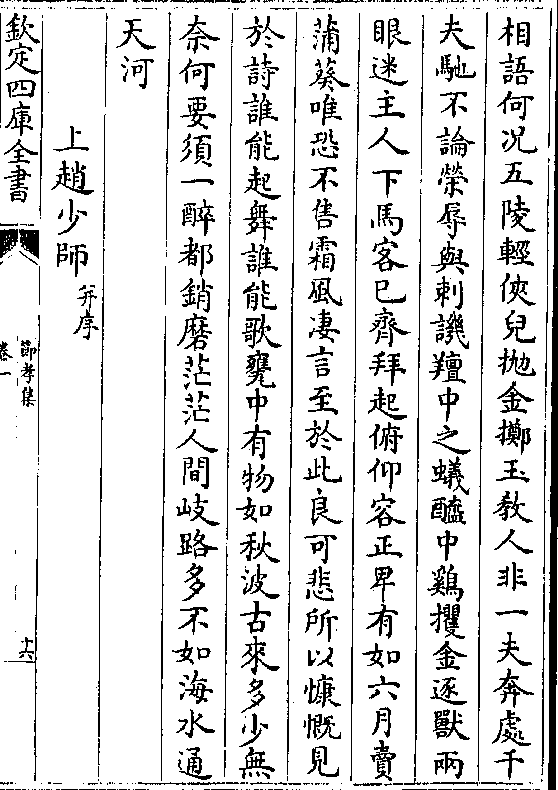 相語何况五陵輕俠兒拋金擲玉教人非一夫奔處千
夫馳不論榮辱與刺譏羶中之蟻醯中鷄攫金逐獸兩
眼迷主人下馬客已齊拜起俯仰容正卑有如六月賣
蒲葵唯恐不售霜風凄言至於此良可悲所以慷慨見
於詩誰能起舞誰能歌甕中有物如秋波古來多少無
奈何要須一醉都銷磨茫茫人間岐路多不如海水通
天河
上趙少師并序
欽定四庫全書
節孝集
卷一
十六